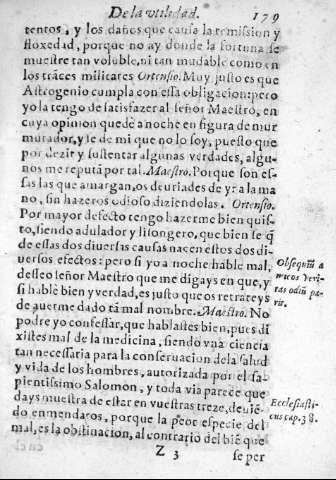 De la vtilidad.
179
tentos, y los daños que causa la remission y
floxedad, porque no ay donde la fortuna se
muestre tan voluble, ni tan mudable como en
los trãces militares Ortensio. Muy justo es que
Astrogenio cumpla con essa obligacion: pero
yo la tengo de satisfazer al señor Maestro, en
cuya opinion quedè a noche en figura de mur
murador, y le de mi que no lo soy, puesto que
por dezir y sustentar algunas verdades, algu-
nos me reputã por tal. Maestro. Porque son es-
sas las que amargan, os deuriades de yr a la ma
no, sin hazeros odioso diziendolas. Ortensio.
Por mayor defecto tengo hazerme bien quis-
to, siendo adulador y lisongero, que bien se q̃
de essas dos diuersas causas nacen estos dos di-
uersos efectos: pero si yo a noche hable mal,
desseo señor Maestro que me digays en que, y
si hablè bien y verdad, es justo que os retrateys
de auerme dado tã mal nombre. Maestro. No
podre yo confessar, que hablastes bien, pues di
xistes mal de la medicina, siendo vna ciencia
tan necessaria para la conseruacion de la salud
y vida de los hombres, autorizada por el sa-
pientissimo Salomon, y toda via parece que
days muestra de estar en vuestras treze, deuiẽ-
do enmendaros, porque la peor especie del
mal, es la obstinacion, al contrario del biẽ que
Z 3
se per
Obsequiũ a
micos veri-
tas odiũ pa-
rit.
Ecclesiasti-
cus cap. 38.